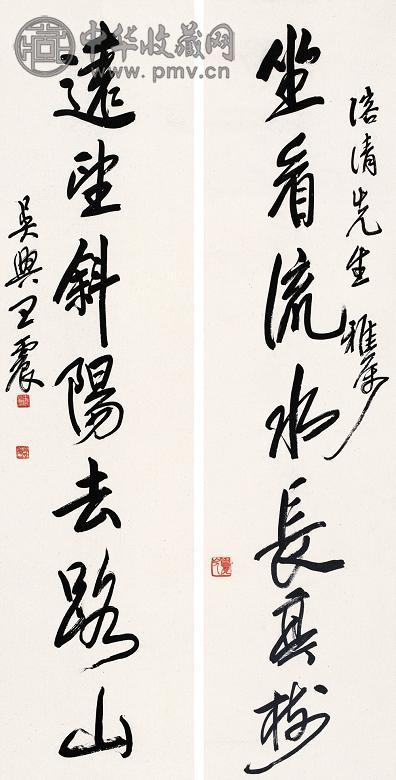 中华收藏网
www.pmv.cn
溶清先生雅屬
坐看流水長其樹
遠望斜陽去路山
吳興王震